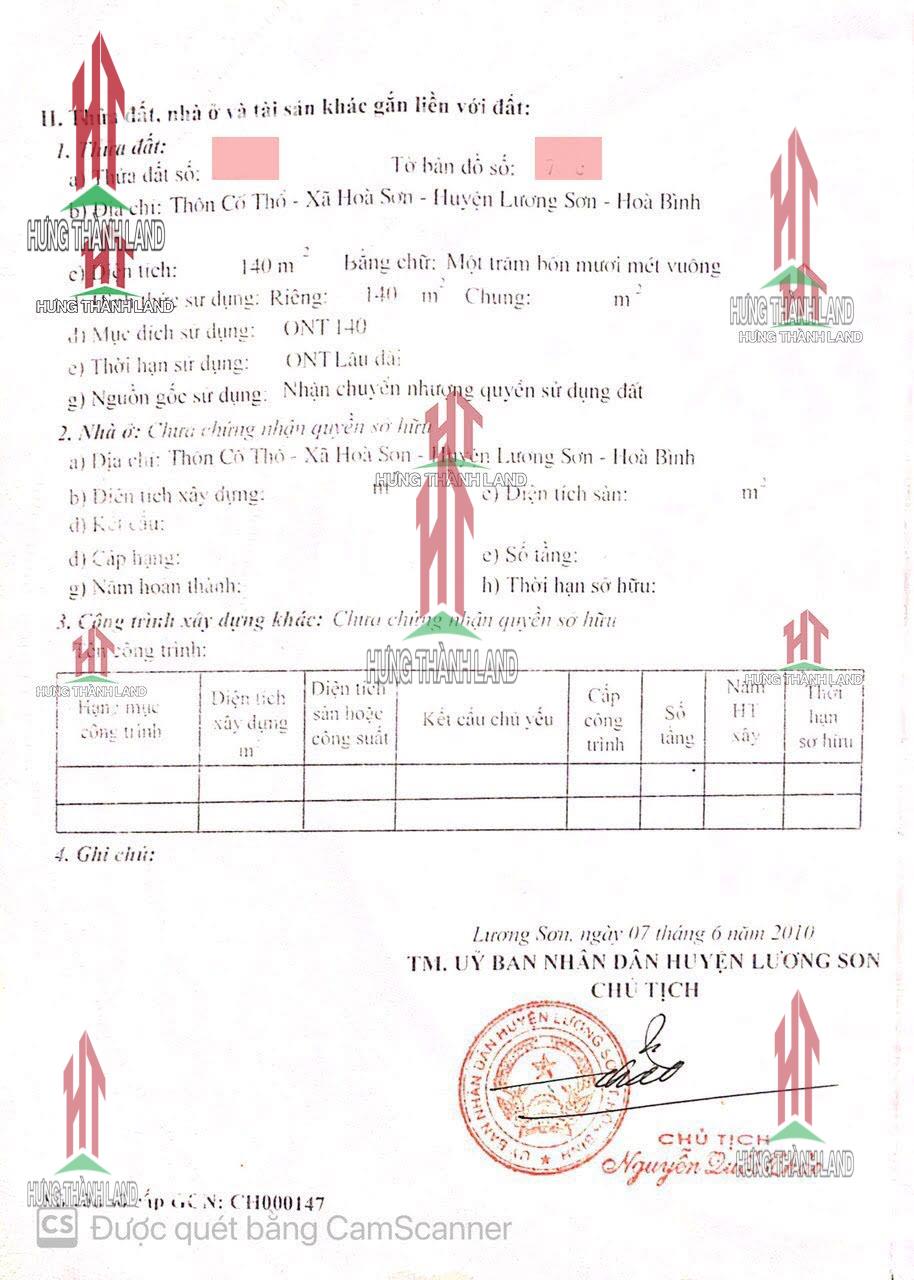 II. Thửa đất, nhà ở và tài sản khác gắn liền với đất:
1. Thửa đất:
a) Thửa đất số: Tờ bản đồ số:
b) Địa chỉ: Thôn Cố Thổ - Xã Hoà Sơn - Huyện Lương Sơn - Hoà Bình
HƯNG THÀNH LAND
c) Diện tích: 140 m² Bằng chữ: Một trăm bốn mươi mét vuông
sử dụng: Riêng: 140 m² Chung: m²
HƯNG THÀNH LAND
HƯNG THÀNH LAND
HƯNG THÀNH LAND
đ) Mục đích sử dụng: ONT 140
e) Thời hạn sử dụng: ONT Lâu dài
g) Nguồn gốc sử dụng: Nhận chuyển nhượng quyền sử dụng đất
2. Nhà ở: Chưa chứng nhận quyền sở hữu
a) Địa chỉ: Thôn Cố Thổ - Xã Hoà Sơn - Huyện Lương Sơn - Hoà Bình
HƯNG THÀNH LAND
b) Diện tích xây dựng: m c) Diện tích sàn: m²
d) Kết cấu:
đ) Cấp hạng: e) Số tầng:
g) Năm hoàn thành: h) Thời hạn sở hữu:
3. Công trình xây dựng khác: Chưa chứng nhận quyền sở hữu
Tên công trình:
HƯNG THÀNH LAND
HƯNG THÀNH LAND
HƯNG THÀNH LAND
Hạng mục công trình Diện tích xây dựng m² Diện tích sàn hoặc công suất Kết cấu chủ yếu Cấp công trình Số tầng Năm HT xây Thời hạn sở hữu
4. Ghi chú:
Lương Sơn, ngày 07 tháng 6 năm 2010
TM. UỶ BAN NHÂN DÂN HUYỆN LƯƠNG SƠN
CHỦ TỊCH
UỶ BAN NHÂN DÂN HUYỆN LƯƠNG SƠN
CHỦ TỊCH
Nguyễn
HƯNG THÀNH LAND
HƯNG THÀNH LAND
cấp GCN: CH000147
CS Được quét bằng CamScanner